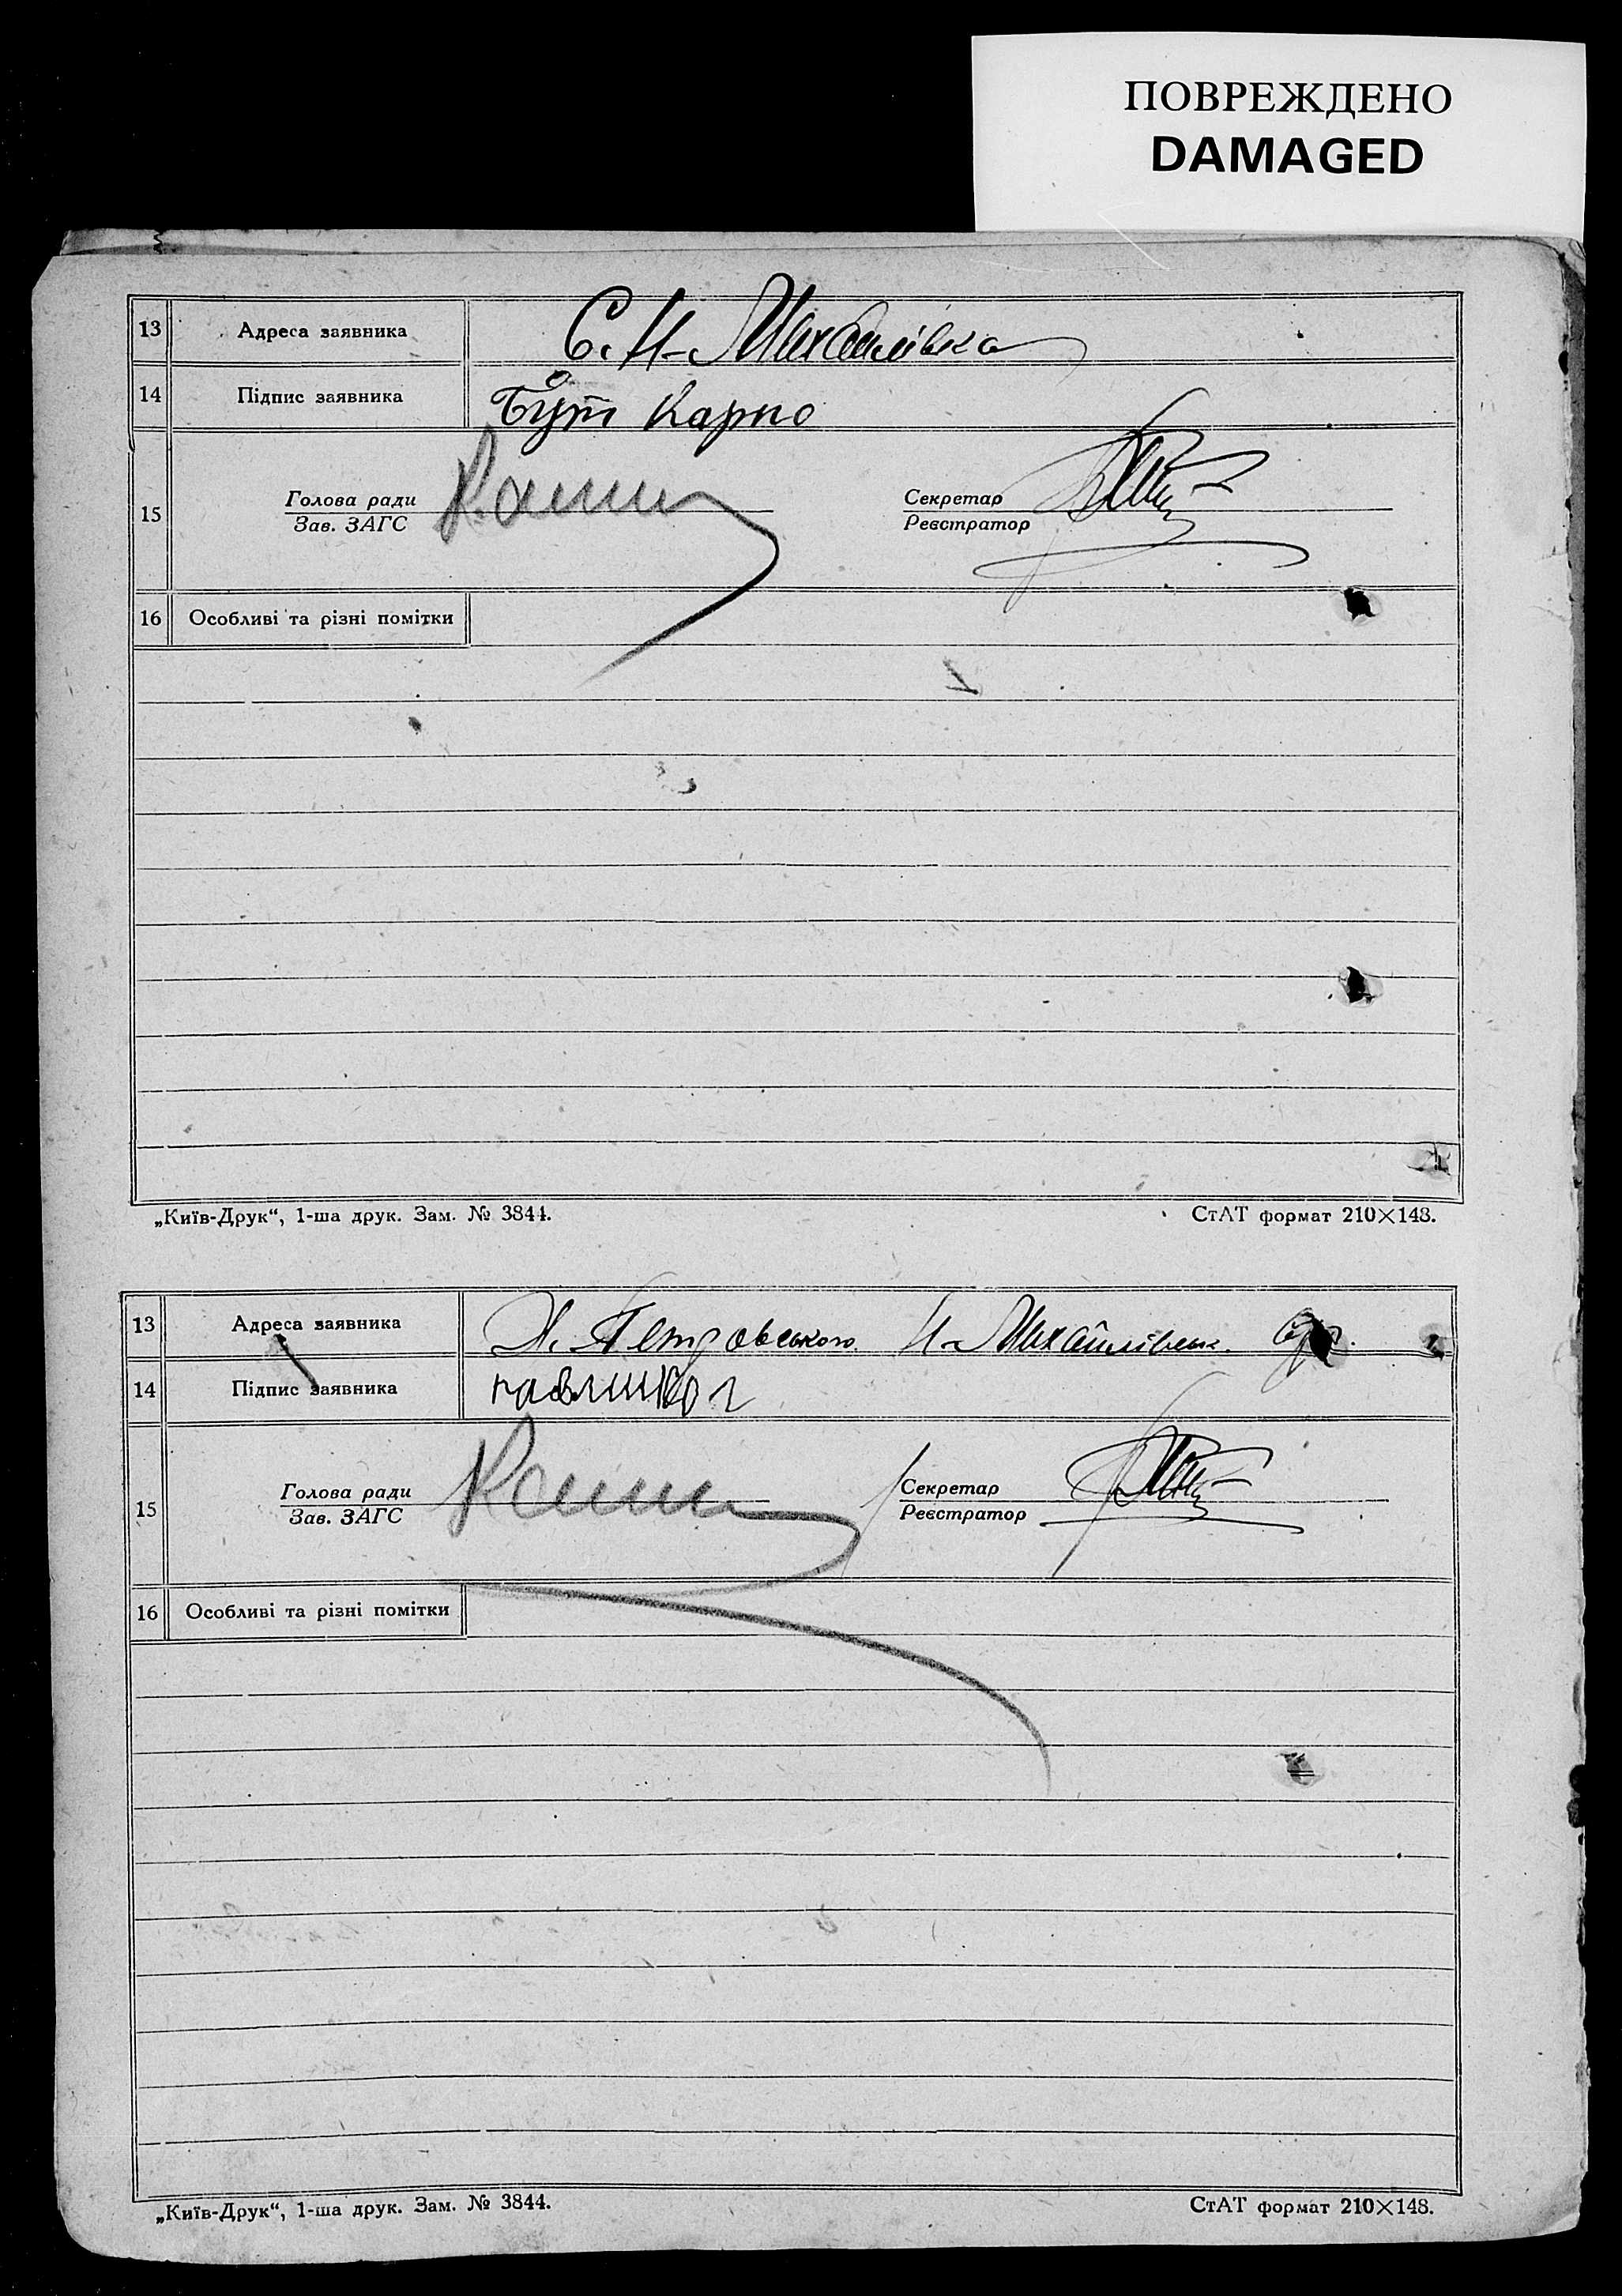 ПОВРЕЖДЕНО
DAMAGED
13 Адреса заявника С. Н-Михайлівка
14 Підпис заявника Бут Карпо
Голова ради Секретар
15
Зав. ЗАГС Реєстратор
16 Особливі та різні помітки
„Київ-Друк“, 1-ша друк. Зам. № 3844. СтАТ формат 210×148.
13 Адреса заявника Х. Петровського Н-Михайлівськ.
14 Підпис заявника
Голова ради Секретар
15
Зав. ЗАГС Реєстратор
16 Особливі та різні помітки
„Київ-Друк“, 1-ша друк. Зам. № 3844. СтАТ формат 210×148.